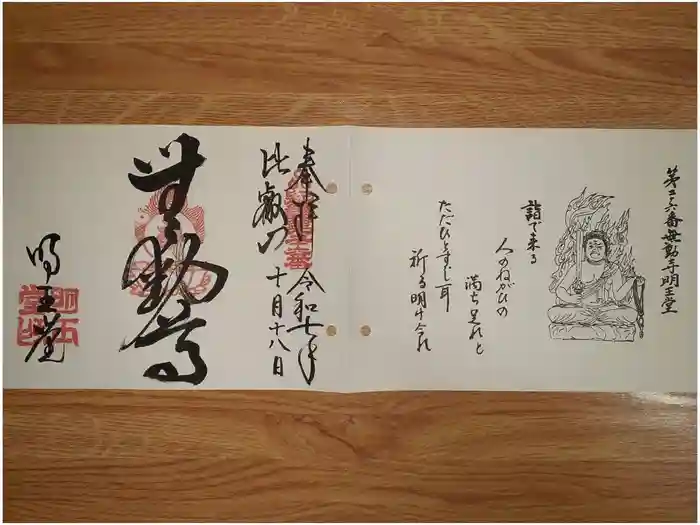 第二六番無動寺明王堂
詣で来る
人のねがひの
満ち足れと
ただひとすじ耳
祈る明け合れ
奉拝 令和七年
比叡山 十月十八日
無動尊
明王堂
明王堂印